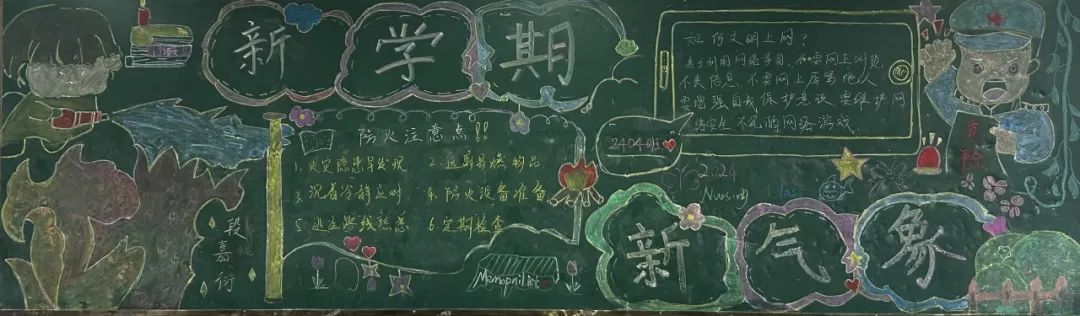 新学期
如何文明上网?
善于利用网络学习，不要网上浏览
不良信息 不要网上辱骂他人
要增强自我保护意识 要维护网
络安全 不沉溺网络游戏
防火注意点!!
1、火灾隐患早发现 2、远离易燃物品
3、沉着冷静应对 4、防火设备准备
5、逃生路线熟悉 6、定期检查
240401
2024
Nursing Class
段嘉衍
新气象